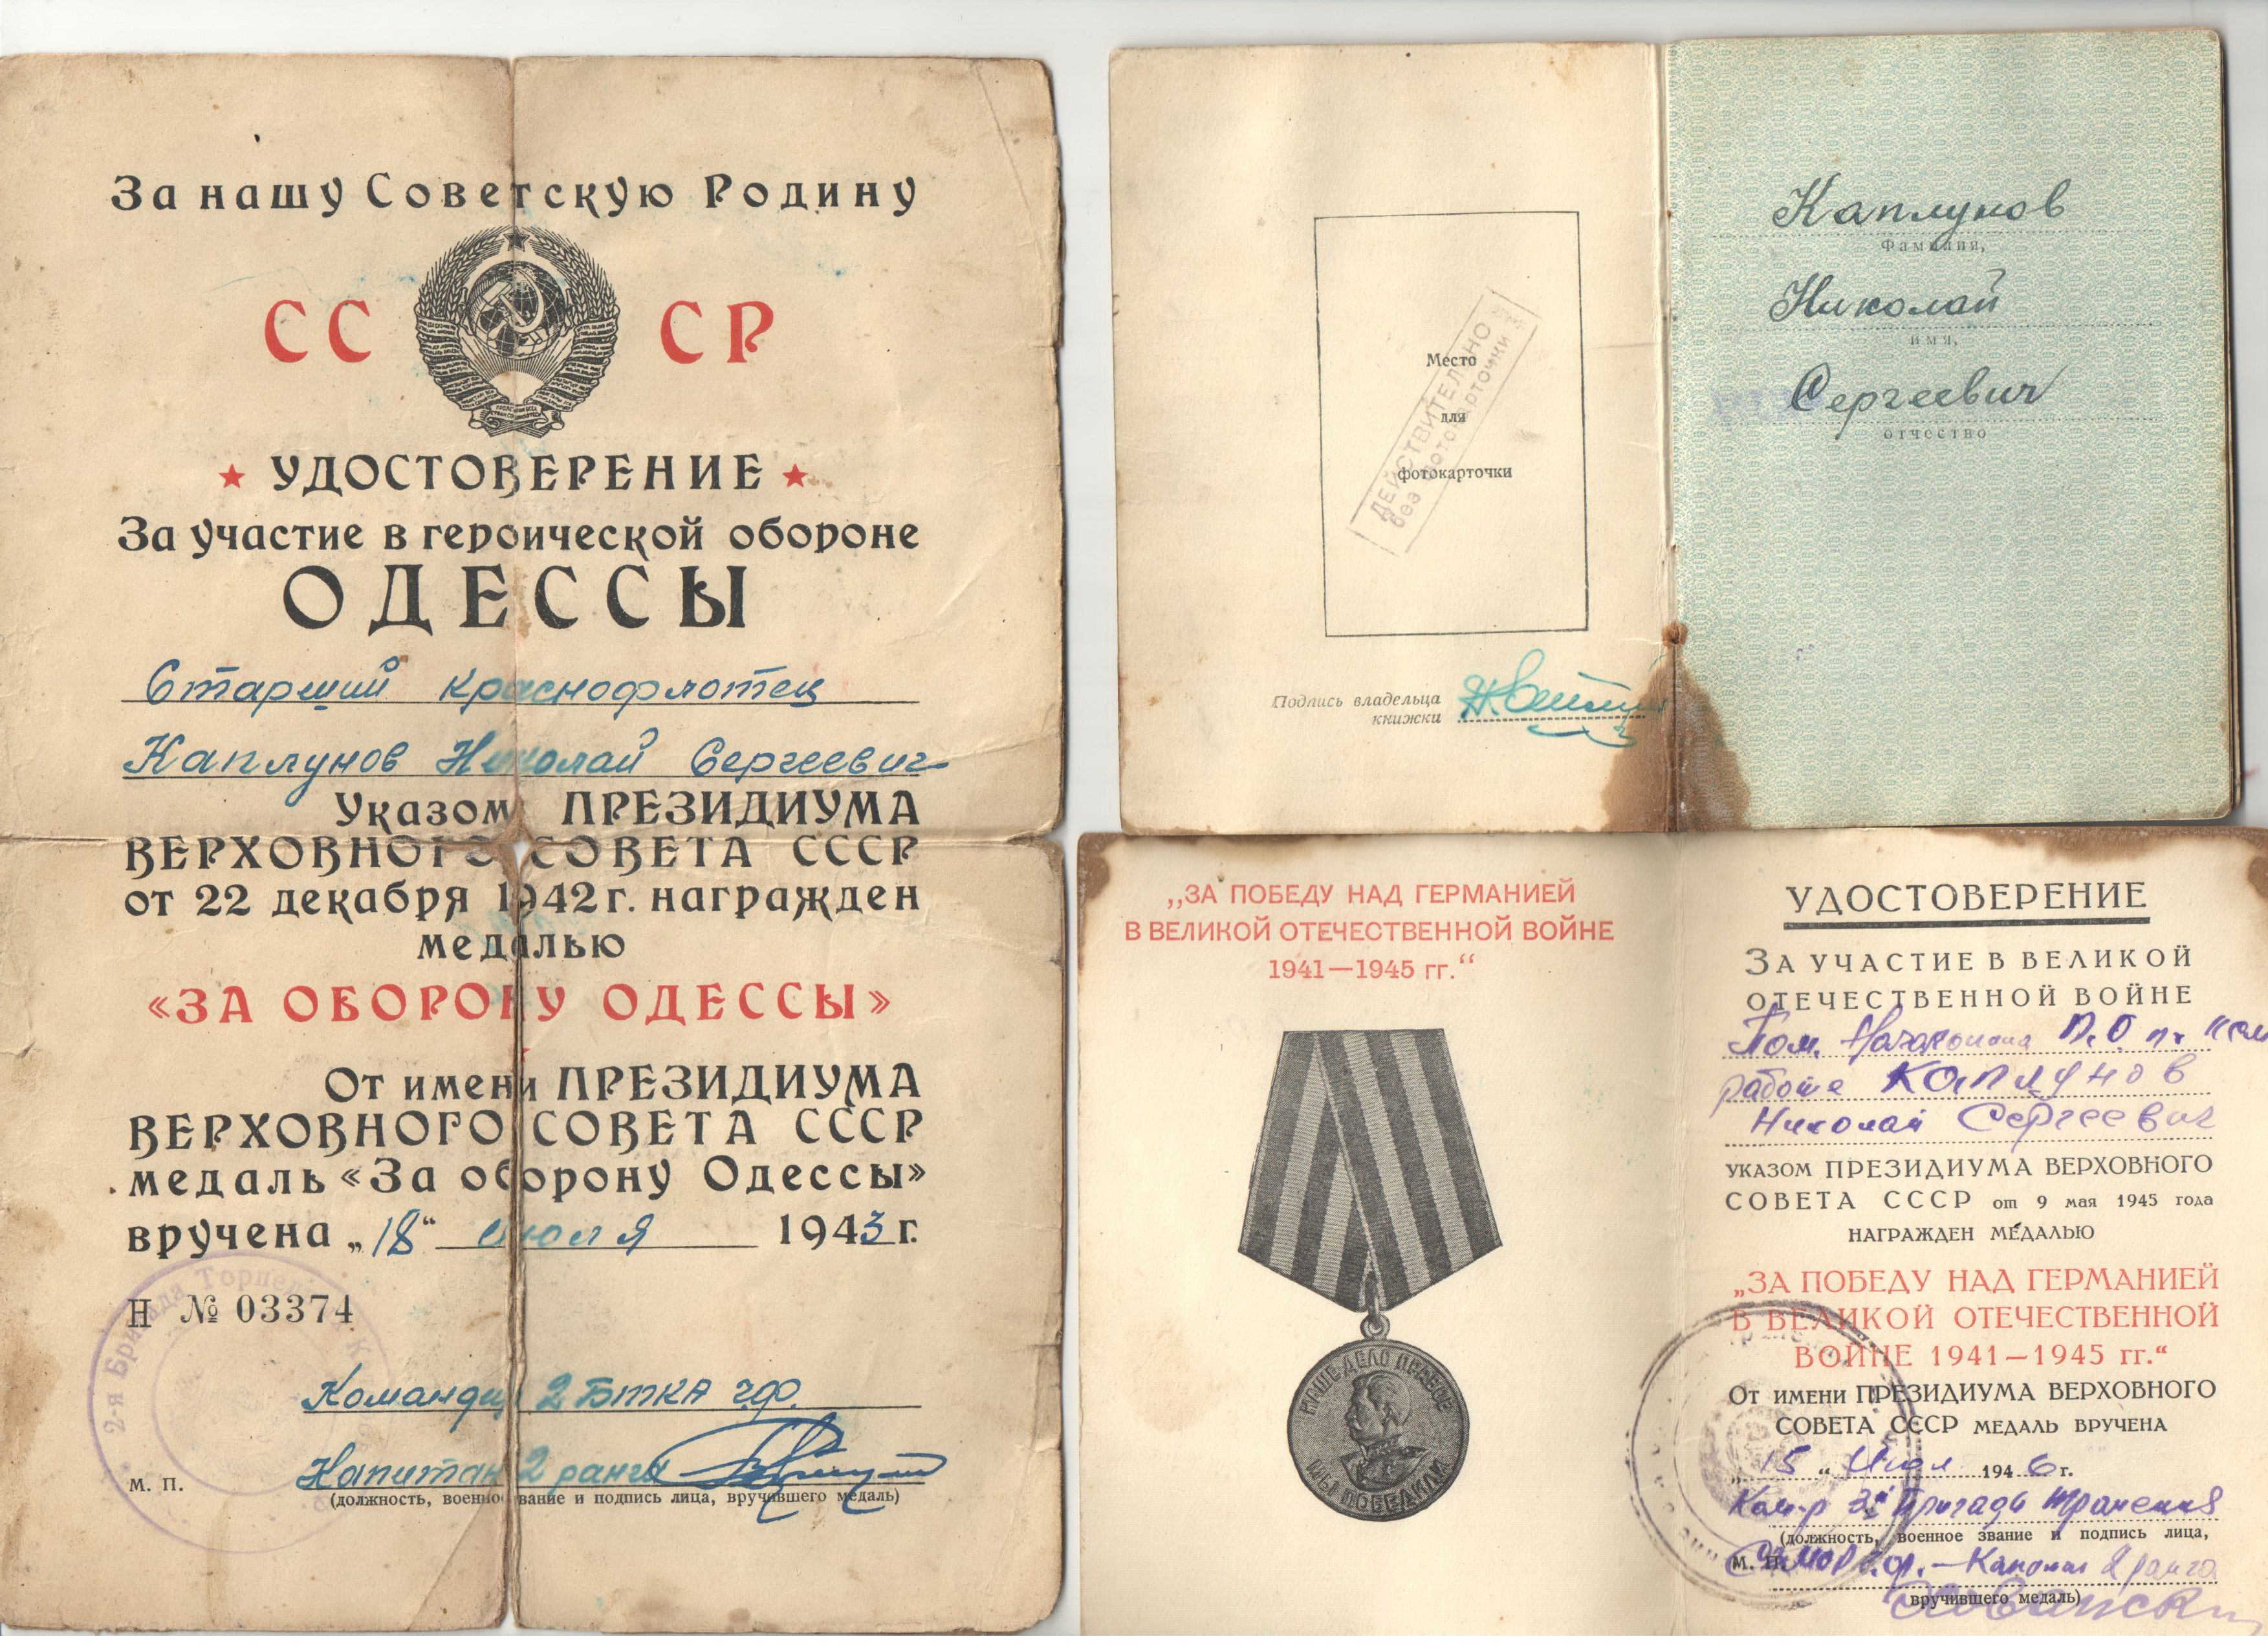 За нашу Советскую Родину
СС СР
УДОСТОВЕРЕНИЕ
За участие в героической обороне
ОДЕССЫ
Старший краснофлотец
Каплунов Николай Сергеевич
Указом ПРЕЗИДИУМА
ВЕРХОВНОГО СОВЕТА СССР
от 22 декабря 1942 г. награжден
медалью
«ЗА ОБОРОНУ ОДЕССЫ»
От имени ПРЕЗИДИУМА
ВЕРХОВНОГО СОВЕТА СССР
медаль «За оборону Одессы»
вручена „18“ июля 1943 г.
2-я Бригада
Н № 03374
Командир 2 Бтка ЧФ.
Капитан 2 ранга
М. П.
(должность, военное звание и подпись лица, вручившего медаль)
Место
для
фотокарточки
ДЕЙСТВИТЕЛЬНО
без фотокарточки
Подпись владельца
книжки
Каплунов
Фамилия,
Николай
имя,
Сергеевич
отчество
„ЗА ПОБЕДУ НАД ГЕРМАНИЕЙ
В ВЕЛИКОЙ ОТЕЧЕСТВЕННОЙ ВОЙНЕ
1941—1945 гг.“
НАШЕ ДЕЛО ПРАВОЕ
МЫ ПОБЕДИЛИ
УДОСТОВЕРЕНИЕ
ЗА УЧАСТИЕ В ВЕЛИКОЙ
ОТЕЧЕСТВЕННОЙ ВОЙНЕ
Пом. П.О по
работе Каплунов
Николай Сергеевич
УКАЗОМ ПРЕЗИДИУМА ВЕРХОВНОГО
СОВЕТА СССР от 9 мая 1945 года
НАГРАЖДЕН МЕДАЛЬЮ
„ЗА ПОБЕДУ НАД ГЕРМАНИЕЙ
В ВЕЛИКОЙ ОТЕЧЕСТВЕННОЙ
ВОЙНЕ 1941—1945 гг.“
ОТ ИМЕНИ ПРЕЗИДИУМА ВЕРХОВНОГО
СОВЕТА СССР МЕДАЛЬ ВРУЧЕНА
„15“ Июл 1946 г.
Ком-р Бригады траления
(должность, военное звание и подпись лица,
М. П. Капитан ранга
вручившего медаль)